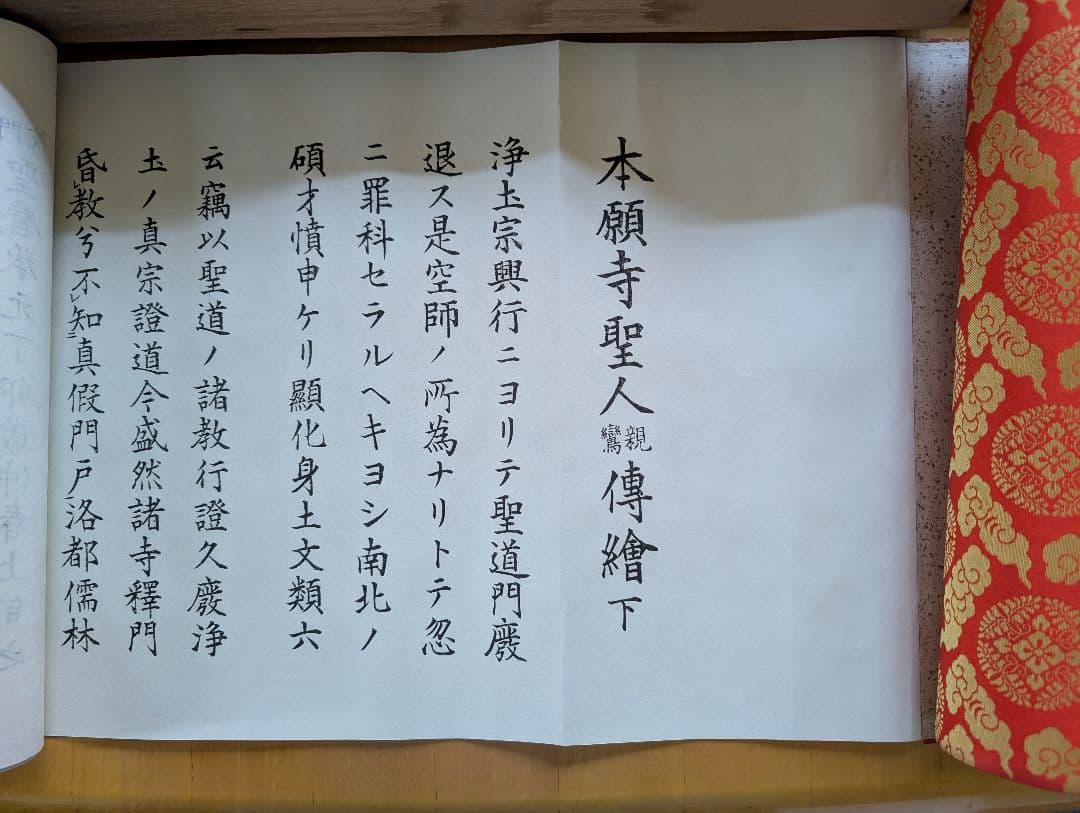 本願寺聖人親鸞傳繪下
浄圡宗興行ニヨリテ聖道門廢
退ス是空師ノ所為ナリトテ忽
ニ罪科セラルヘキヨシ南北ノ
碩才憤申ケリ顯化身土文類六
云竊以聖道ノ諸教行證久廢浄
圡ノ真宗證道今盛然諸寺釋門
昏レ教兮不レ知ニ真假門戸洛都儒林